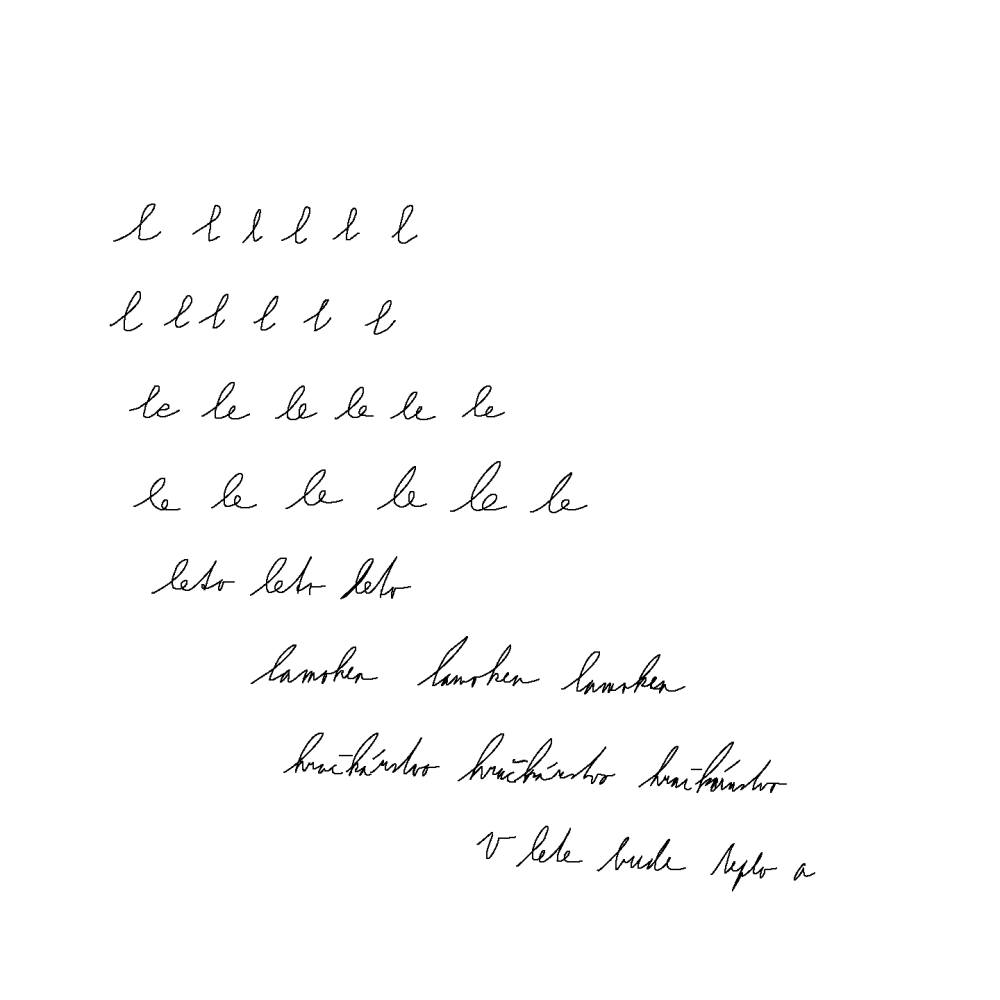 l l l l l l
l l l l l l
le le le le le le
le le le le le le
leto leto leto
lamoken lamoken lamoken
hračkárstvo hračkárstvo hračkárstvo
V lete bude teplo a